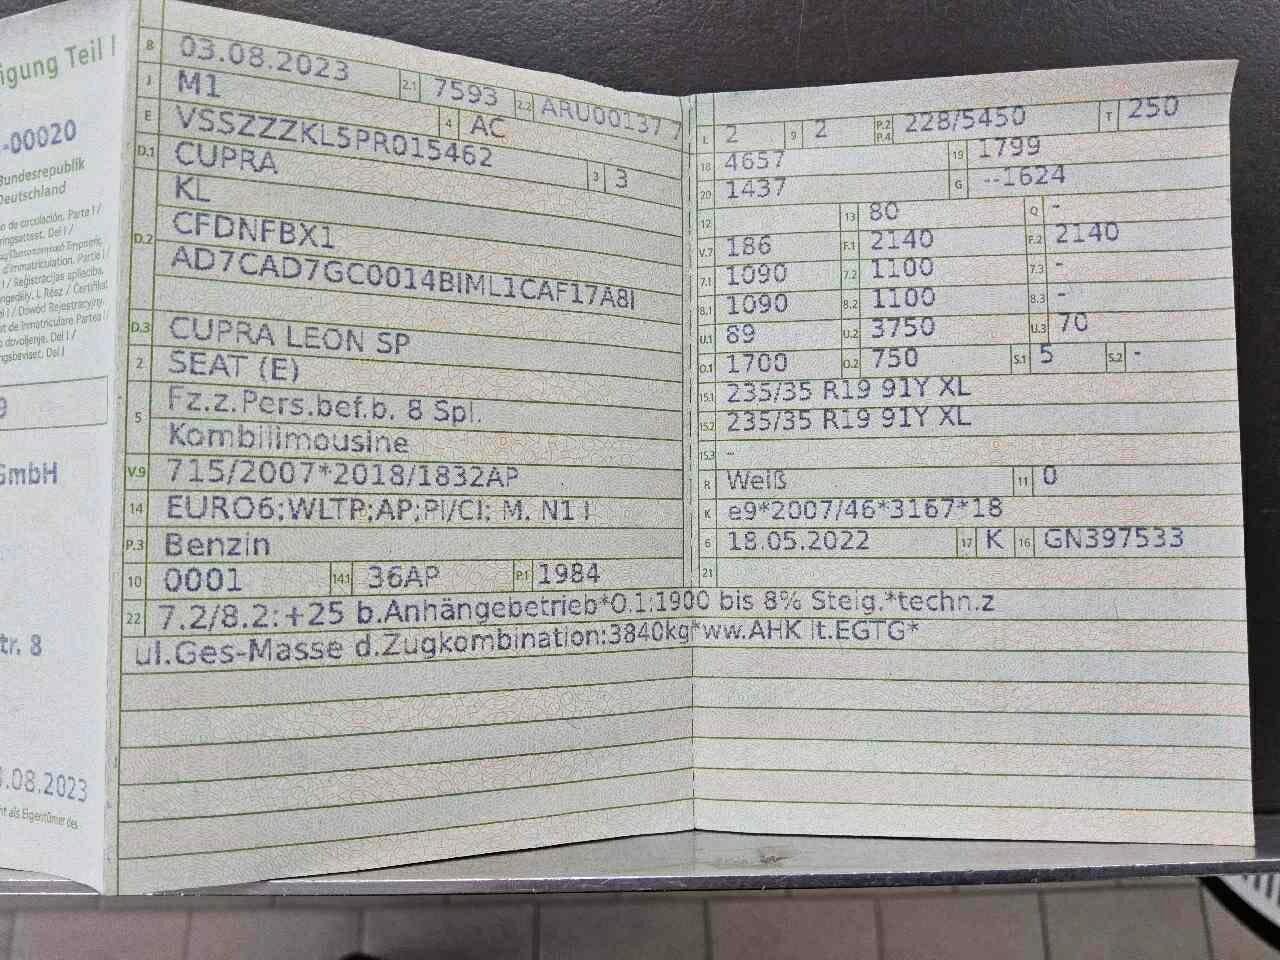 igung Teil I
-00020
Bundesrepublik
Deutschland
GmbH
tr. 8
.08.2023
B 03.08.2023 2.1 7593 2.2 ARU00137 7
J M1 4 AC
E VSSZZZKL5PR015462 3 3
D.1 CUPRA
D.2 KL
CFDNFBX1
AD7CAD7GC0014BIML1CAF17A8I
D.3 CUPRA LEON SP
2 SEAT (E)
5 Fz.z.Pers.bef.b. 8 Spl.
Kombilimousine
V.9 715/2007*2018/1832AP
14 EURO6;WLTP;AP;PI/CI; M, N1 I
P.3 Benzin
10 0001 14.1 36AP P.1 1984
L 2 9 2 P.2 P.4 228/5450 T 250
18 4657 19 1799
20 1437 G --1624
12 13 80 Q -
V.7 186 F.1 2140 F.2 2140
7.1 1090 7.2 1100 7.3 -
8.1 1090 8.2 1100 8.3 -
U.1 89 U.2 3750 U.3 70
O.1 1700 O.2 750 S.1 5 S.2 -
15.1 235/35 R19 91Y XL
15.2 235/35 R19 91Y XL
15.3 -
R Weiß 11 0
K e9*2007/46*3167*18
6 18.05.2022 17 K 16 GN397533
21
22 7.2/8.2:+25 b.Anhängebetrieb*O.1:1900 bis 8% Steig.*techn.z
ul.Ges-Masse d.Zugkombination:3840kg*ww.AHK lt.EGTG*